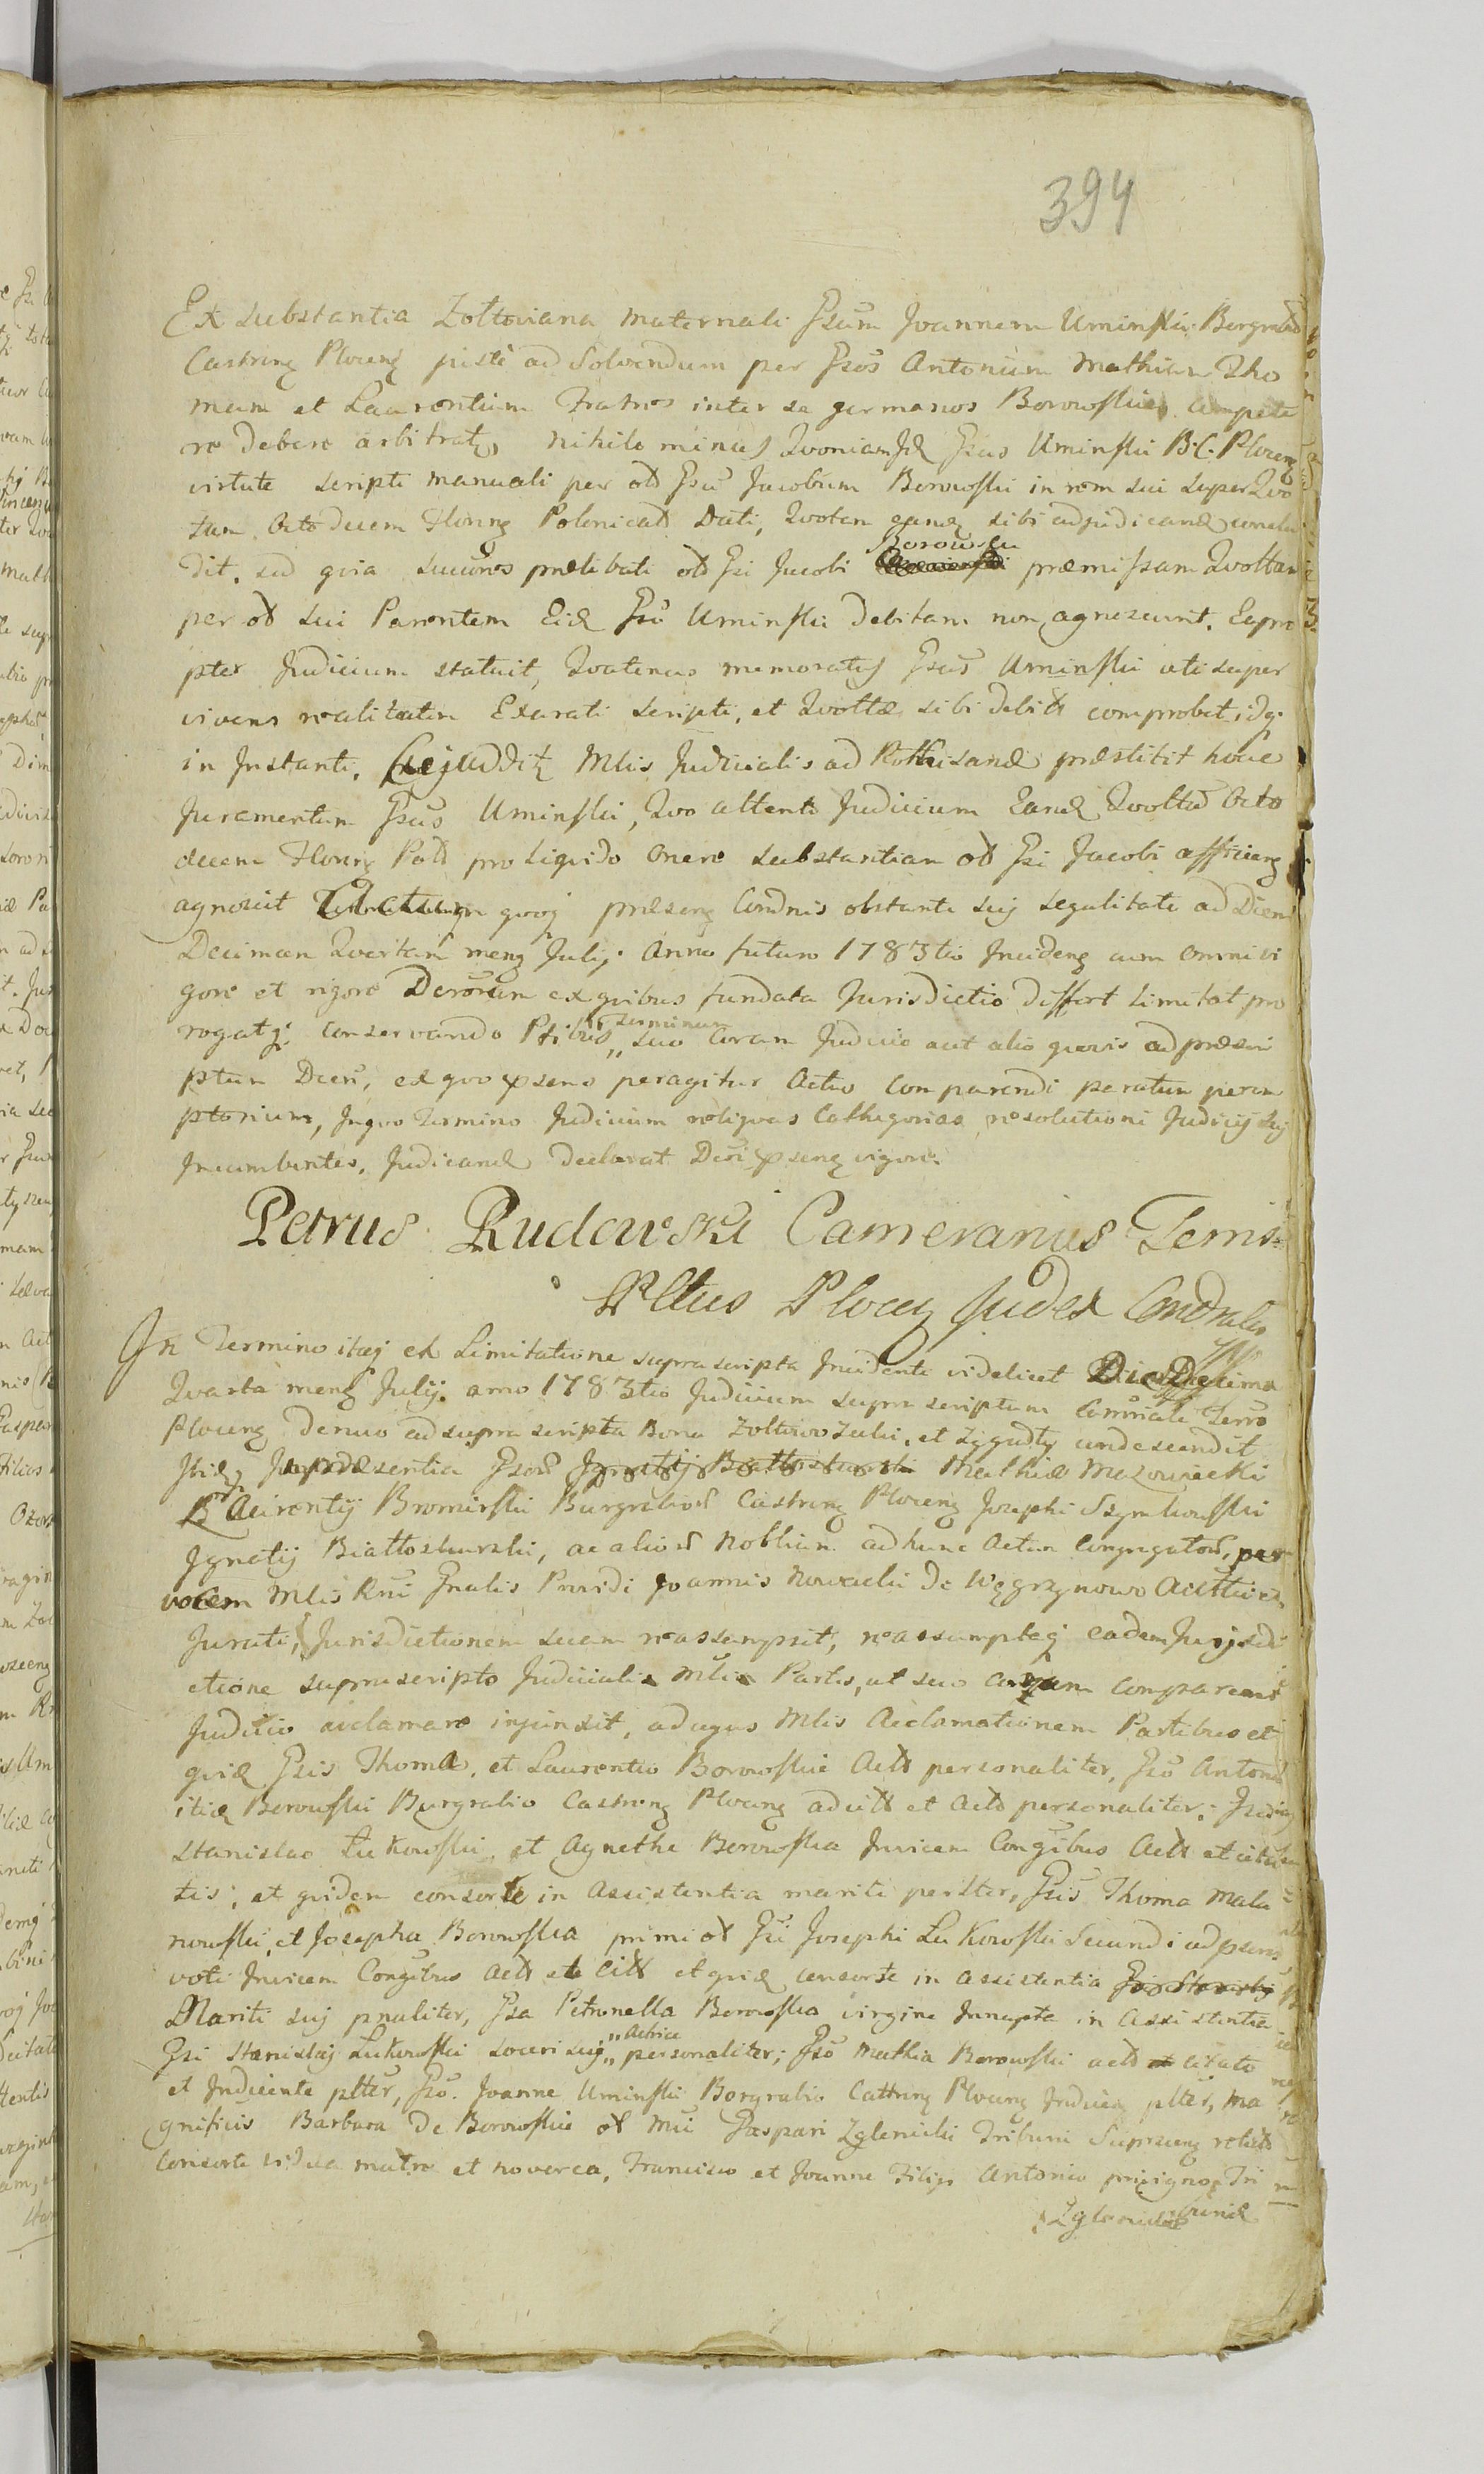 394
Ex substantia Zołtoviana maternali Gsum Joannem Uminski Burgrabiu
Castren Plocen juste ad Solvendum per Gsos Antonium Mathiam Tho
mam et Laurentium Fratres inter se germanos Borowskie compete
re debere arbitratq, nihilo minus Qvoniam Jd Gsus Uminski B. C. Plocen
virtute scripti manualis per od Gsu Jacobum Borowski in rem sui super Qvo
tam Octodecem Floreng Polonicalt Dati, Qvotam eand sibi adjudicand conclu
dit. sed qvia succures prælibati od Gsi Jacobi Borowski præmissam Qvottam
per od sui Parentem Eid Gso Uminski debitam non agnoscunt. Eapro
pter Judicium statuit, Qvatenus memoratus Gsus Uminski uti super
vivens realitatem Exarati scripti, et Qvottæ sibi debitt comprobet, idq
in Instanti. addit Mlis Judicialis ad Rothisand præstitit hocce
Juramentum Gsus Uminski, Qvo attento Judicium Eand Qvottam Octo
decem Floreng Pold pro liqvido onere substantiam od Gsi Jacobi afficieng
agnoscit qvoq præseng Condnis obstante suj legalitate ad Diem
Decimam Qvartam meng Julij. Anno futuro 1783tio Incideng cum omni vi
gore et rigore Decrorum ex qvibus fundata Jurisdictio differt limitat pro
rogatq conservando Ptibus „ terminum suo Coram Judicio aut alio qvovis ad præscri
ptum Diem, ex qvo præsens peragitur Actus comparendi paratum perem
ptorium, In qvo Termino Judicium reliqvas Cathegorias resolutioni Judicij suj
Incumbentes, Judicand declarat Decri præseng vigore.
Petrus Rudowski Camerarius Terris
Pltus Plocen Judex Condnalis
In Termino itaq ex Limitatione supra scripta Incidenti videlicet Die Decima
Qvarta meng Julij. anno 1783tio Judicium supra scriptum Commale Terro
Ploceng denuo ad supra scripta Bona Zołtowo Zulki, et Zygudty condescendit
Ibiq In præsentia Gsor Ignatij Białłoskurski Mathiæ Mazowiecki
Laurentij Bromirski Burgrabior Castreng Ploceng Josephi Szymkowski
Ignatij Białłoskurski, ac alior Noblium ad hunc Actum Congregator, per
vocem Mlis Rni Gnalis Providi Joannis Nowacki de Węgrzynowo
Jurati, Jurisdictionem suam reassumpsit, reassumptaq eadem Jurisdi
ctione supra scripto Judiciali Mli Partes, ut suo coram compareant
Judicio acclamare injunxit, ad cujus Mlis Acclamationem Partibus et
qvid Gsis Thoma, et Laurentio Borowskie Actt personaliter, Gso Antonio
itid Borowski Burgrabio Castreng Ploceng ad citt et Actt personaliter; Gsis
Stanislao Łukowski, et Agnethe Borowska Invicem Conjgibus Actt et cita
tis, et qvidem consorte in Assistentia mariti perslter, Gsis Thoma Mala
nowski, et Josepha Borowska primi od Gsi Josephi Łukowski Secundi ad præsens
voti Invicem Conjgibus Actt et citt et qvid consorte in assistentia Gsi Stanislaj
Mariti suj pnaliter, Gsa Petronella Borowska virgine Innupta in Assistentia
Gsi Stanislaj Łukowski soceri suj „ Actrice personaliter; Gso Mathia Borowski actt et citato
et Inducente plter, Gso. Joanne Uminski Borgrabio Castreng Ploceng Induceng plter, Ma
gnificis Barbara De Borowskie od Mci Gaspari Zglenicki Tribuni Suprasceng relicta
Consorte vidua matre et noverca, Francisco et Joanne Filijs Antonio privigno Tri
bunid
Zglenickie